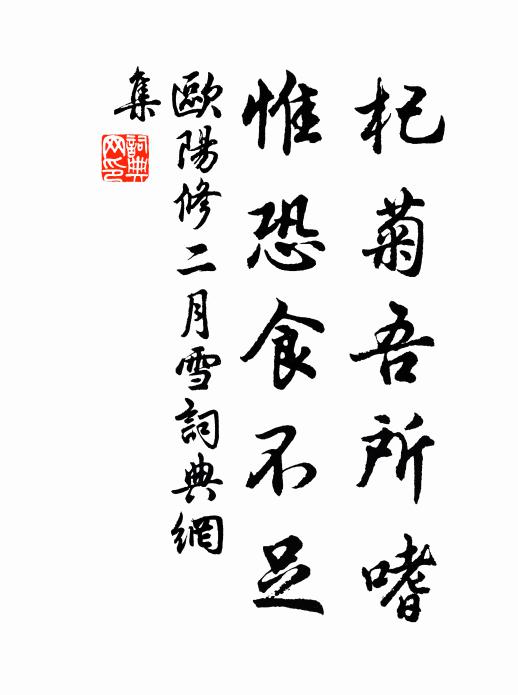 杞菊吾所嗜
惟恐食不足
歐陽修二月雪詞典網
集
詞典
网印